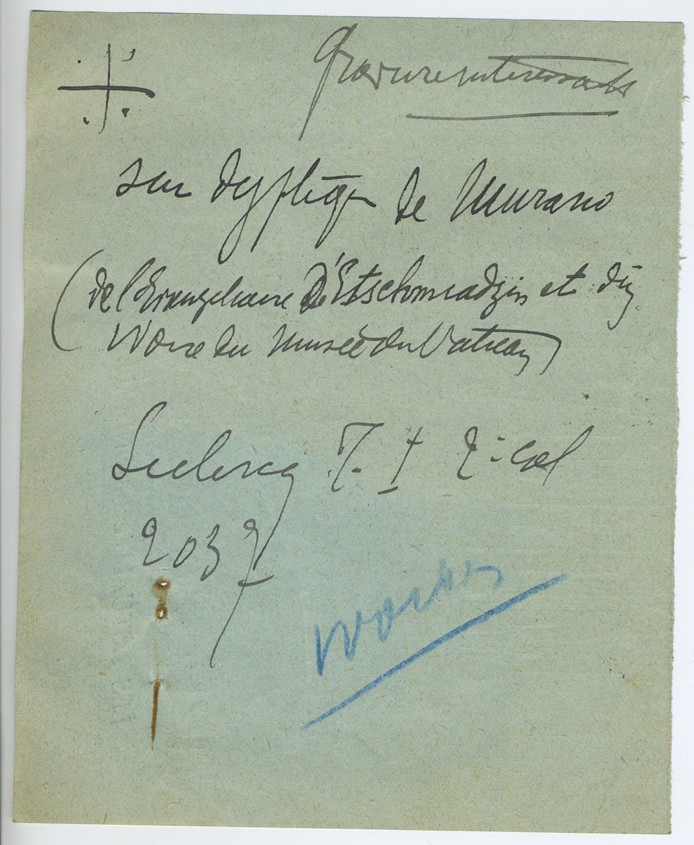 Gravure intéressante
sur dyptique de Murano
(de l'Evangeliaire d'Etschmiadzin et d'un
Ivoire du Musée du Vatican)
Leclercq T. I 2e col
2037
Ivoires